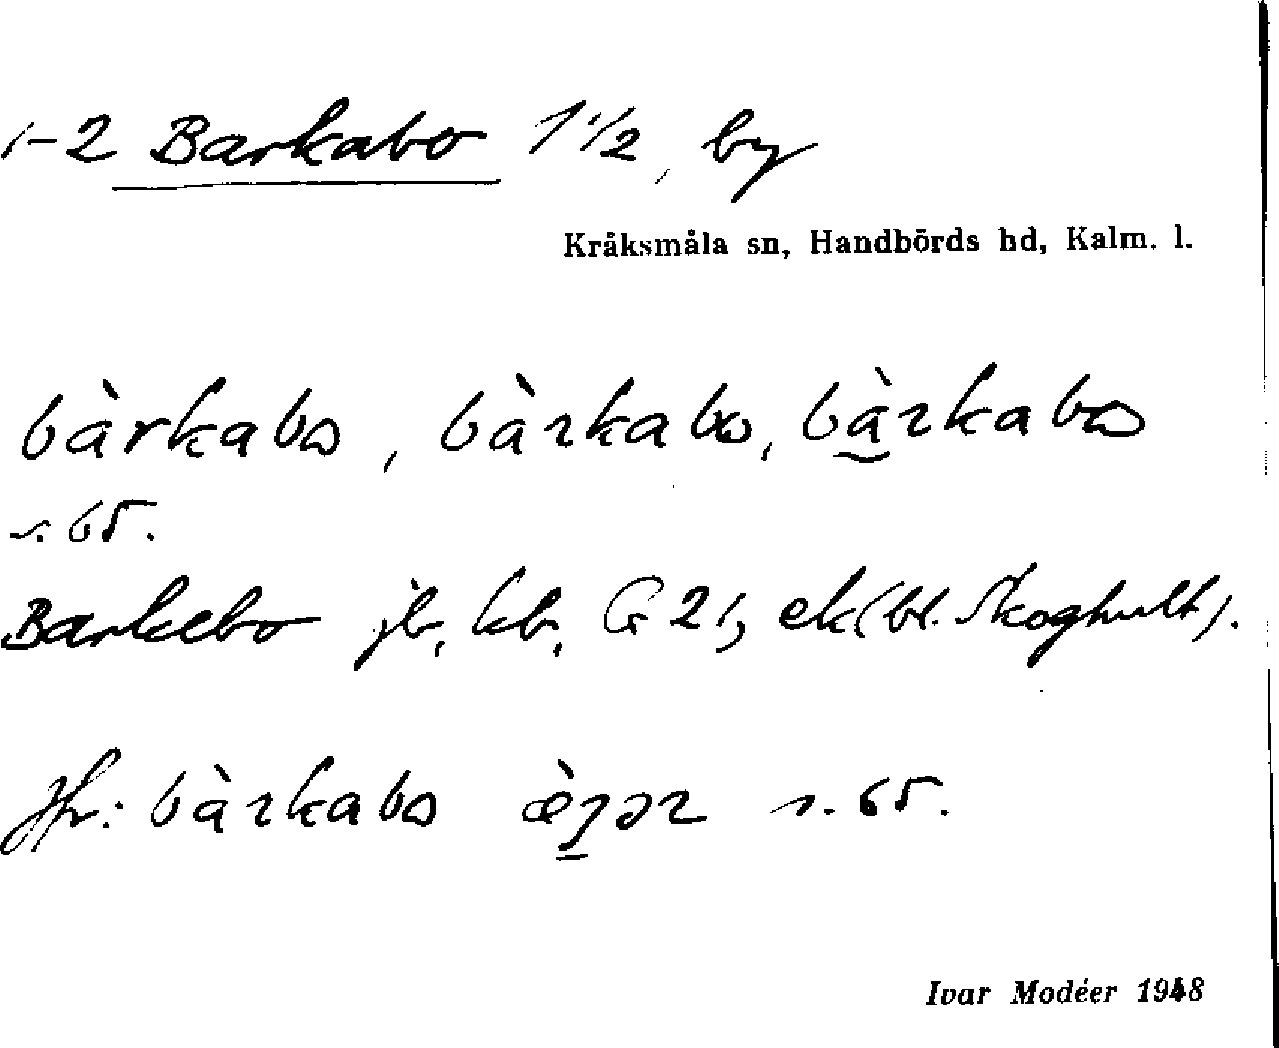 1-2 Barkabo 1 1/2, by
Kråksmåla sn, Handbörds hd, Kalm. l.
bàrkabo, bàrkabo, bàrkabo
s. 65.
Barkebo jb, kb, G 21, ek (bl. Skoghult).
Jfr: bàrkabo s. 65.
Ivar Modéer 1948